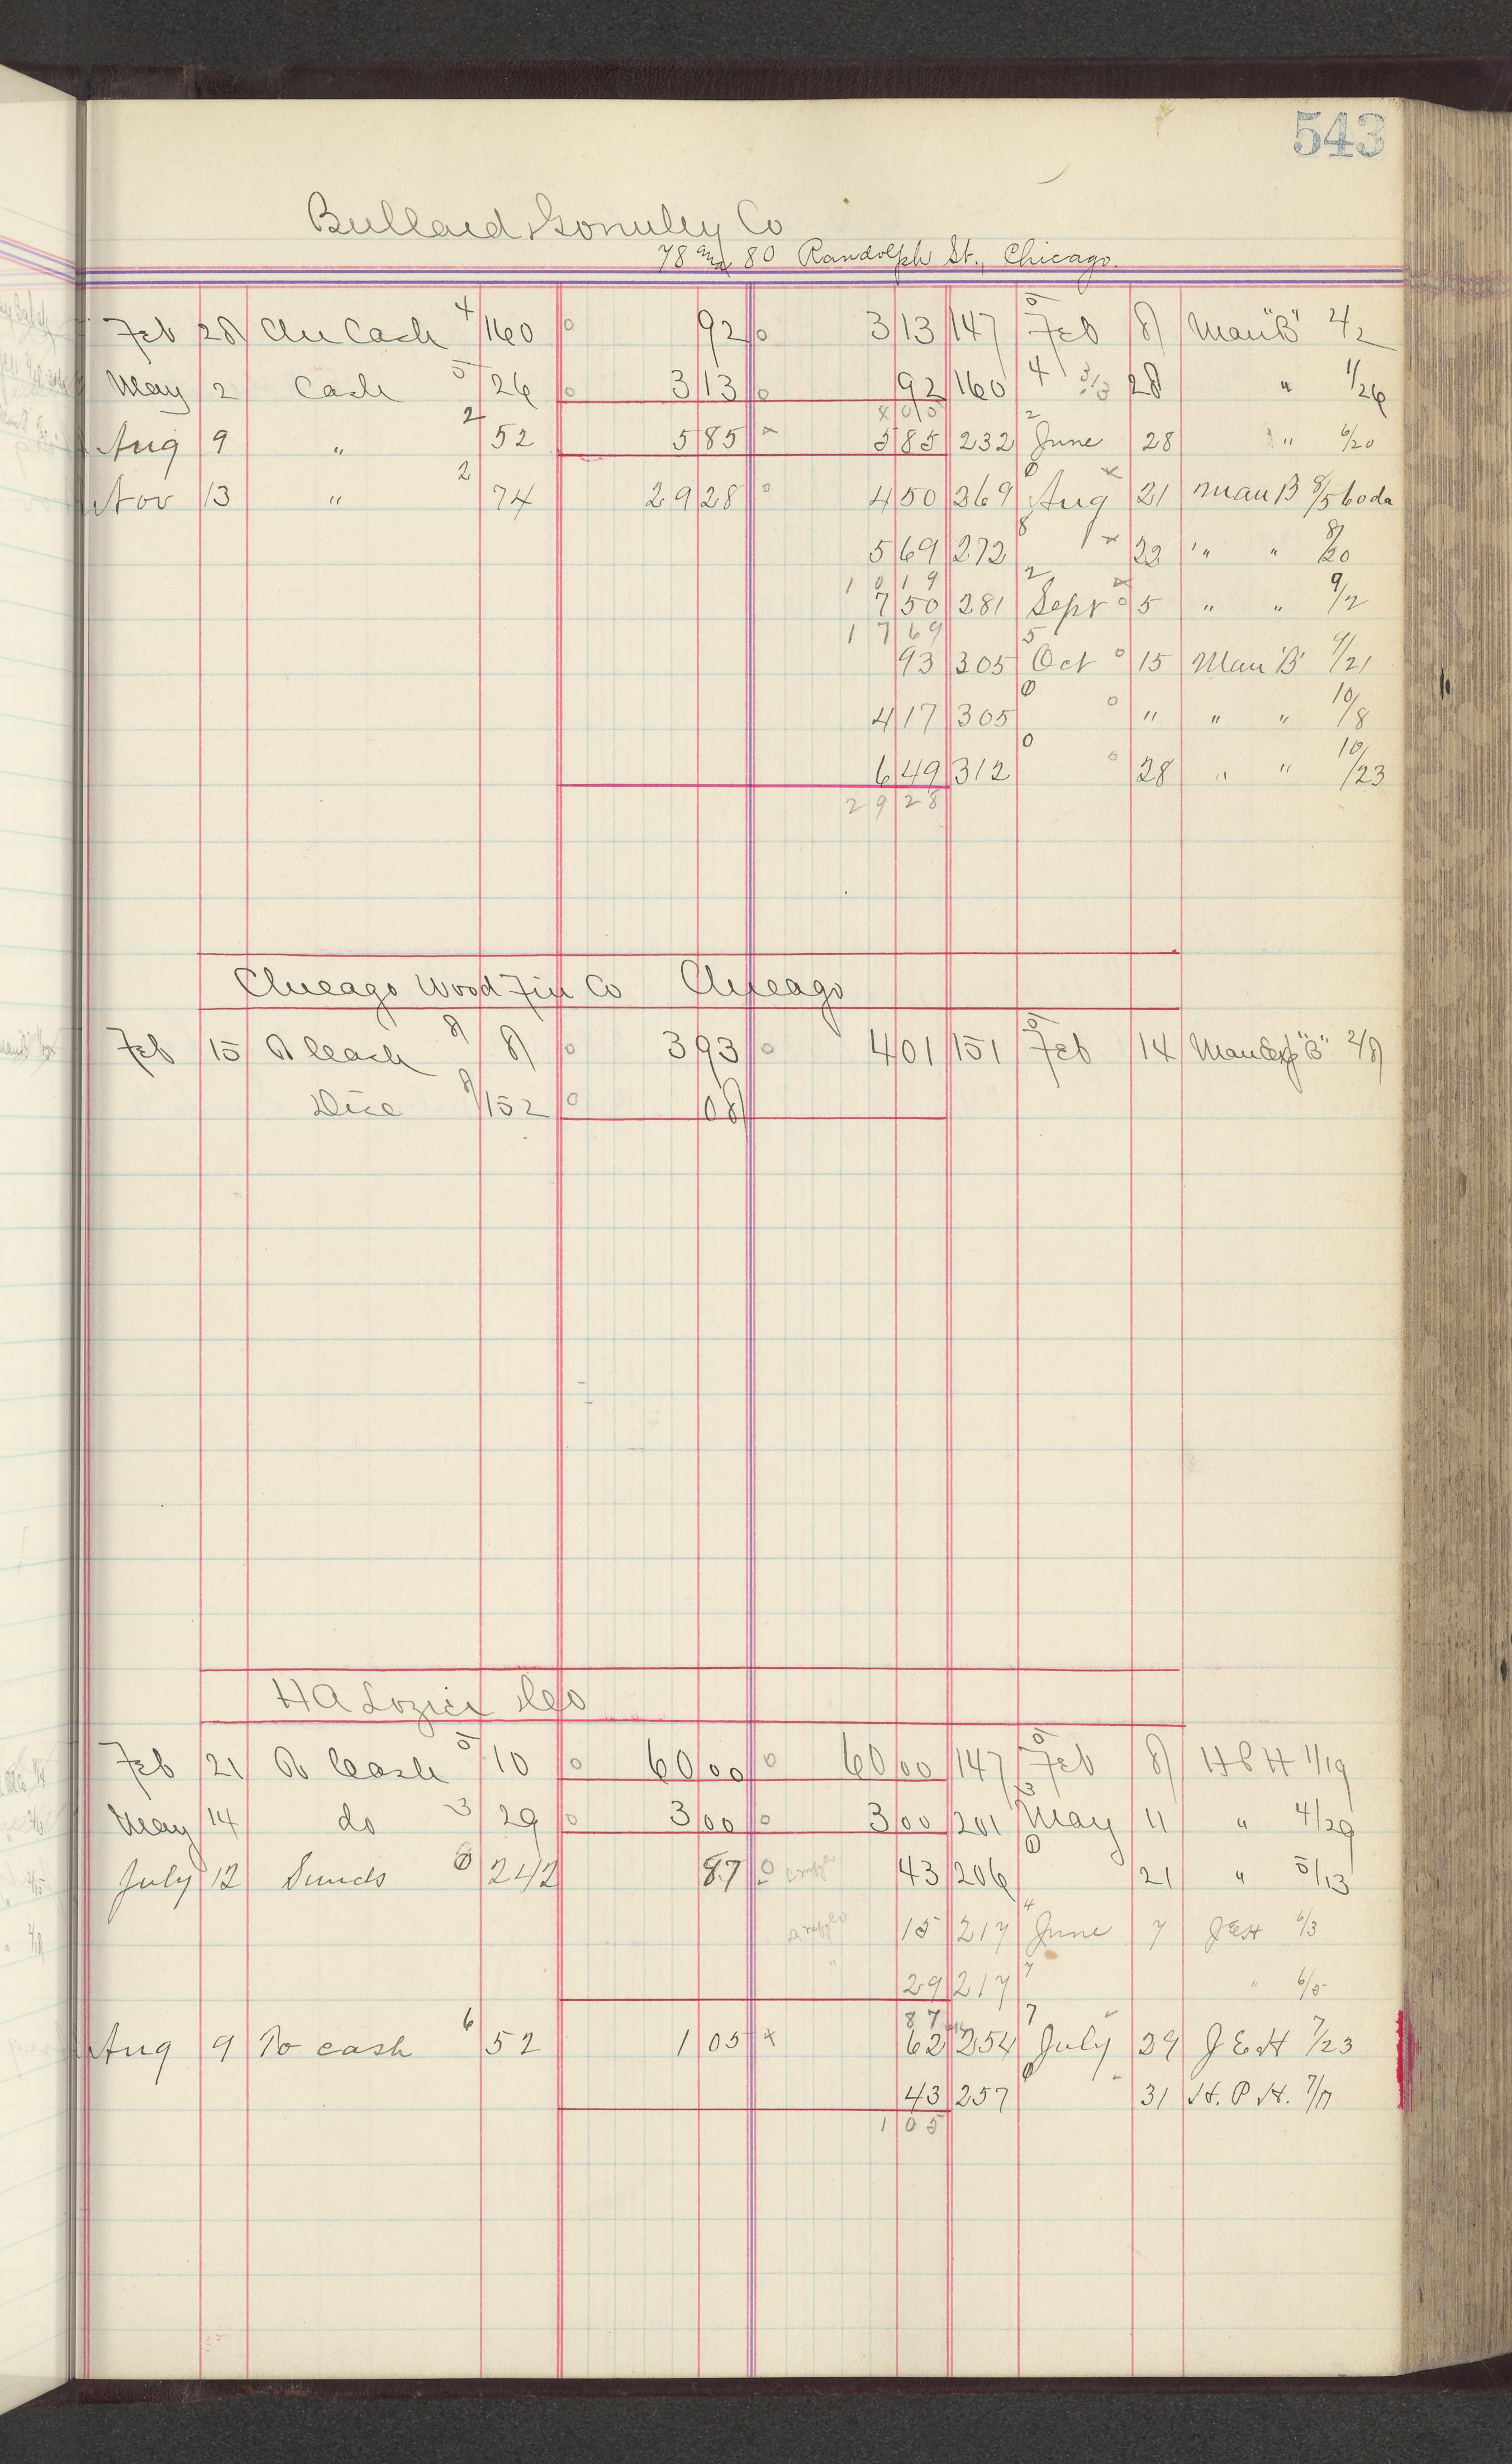 543
Bullard & Gormley Co
78 and 80 Randolph St., Chicago.
Feb 28 Cash 4 160 92 3 13 147 5 Feb 8 Man "B" 2/2
May 2 Cash 5 26 3 13 92 160 4 28 " 1/26
4 05
Aug 9 " 2 52 5 85 5 85 232 2 June 28 " 6/20
Nov 13 " 2 74 29 28 4 50 269 0 Aug 21 Man B 8/5 60 da
5 69 272 8 22 " " 8/20
10 19
7 50 281 2 Sept 5 " " 9/2
17 69
93 305 5 Oct 15 Man "B" 9/21
4 17 305 0 " " " 10/8
6 49 312 0 28 " " 10/23
29 28
Chicago Wood Fin Co Chicago
Feb 15 To Cash 8 8 3 93 4 01 151 5 Feb 14 "B" 2/8
Disc 8 152 08
H A Lozier & Co
Feb 21 To Cash 5 10 60 00 60 00 147 5 Feb 8 H P H 1/19
May 14 do 3 29 3 00 3 00 201 3 May 11 " 4/29
July 12 Sunds 0 242 87 43 206 0 21 " 5/13
15 217 4 June 7 J E H 6/3
" 29 217 7 " 6/5
87
Aug 9 To cash 6 52 1 05 62 254 7 July 29 J E H 7/23
43 257 0 31 H. P. H. 7/17
1 05